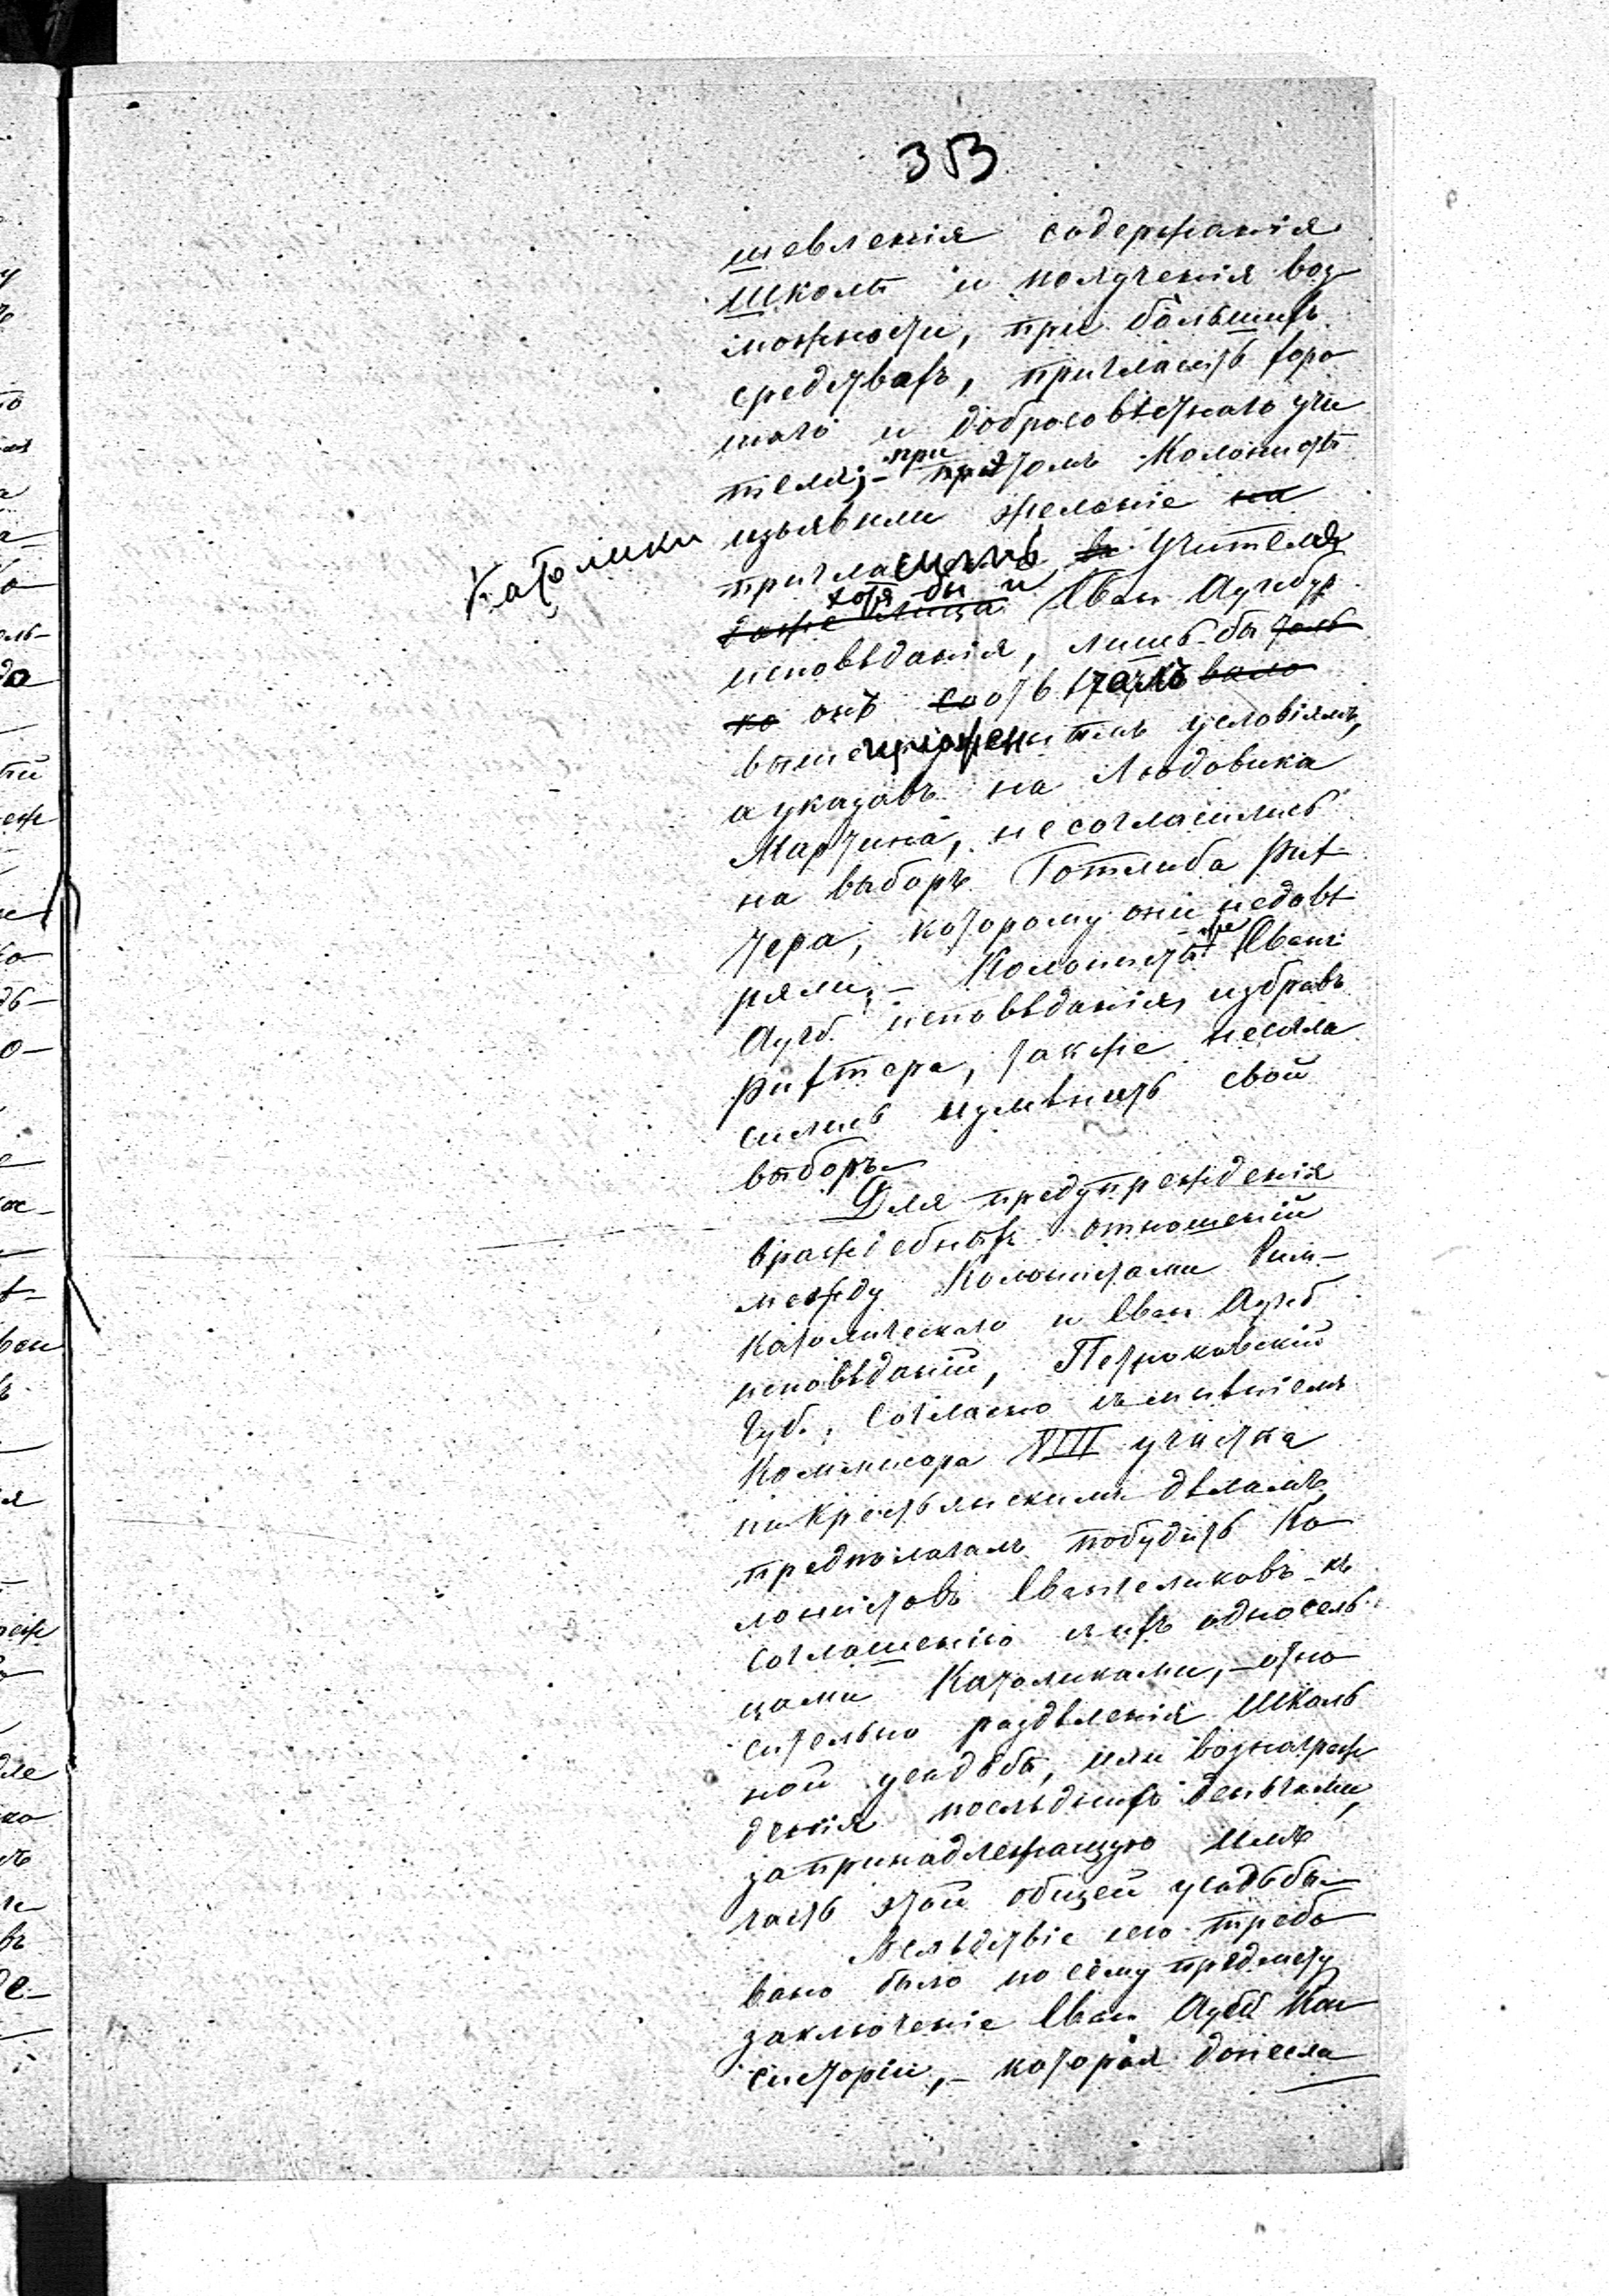 353
шевленія содержанія
школы и полученія воз
можности, при большихъ
средствахъ, пригласить хоро
шаго и добросовѣстнаго учи
теля;- при этомъ Колонисты
Католики
изъявили желаніе на
пригласить въ учителя
хотя бы и
даже лица Еван Аугсбур
исповѣданія, лишь-бы толь
ко онъ соотвѣтствовало
вышеизложеннымъ условіямъ,
а указавъ на Людовика
Мартина, несогласились
на выборъ Готлиба Рих
тера, которому они недовѣ
ряли;- Колонисты же Еванг
Аугсб. исповѣданія, избравъ
Рихтера, также несогла
сились измѣнить свой
выборъ.-
Для предупрежденія
враждебныхъ отношеній
между Колонистами Рим-
Католическаго и Еван Аугсб
исповѣданій, Петроковскій
Губ., согласно съ мнѣніемъ
Коммисара VIII участка
по Крестьянскимъ дѣламъ
предполагалъ побудить Ко
лонистовъ Евангеликовъ къ
соглашенію съ ихъ односель
цами Католиками,- отно
сительно раздѣленія Школь
ной усадьбы, или вознаграж
денія послѣднихъ деньгами,
за принадлежащую имъ
часть этой общей усадьбы.-
Вслѣдствіе сего требо
вано было по сему предмету
заключеніе Еван Аугсб Кон
систоріи,- которая донесла